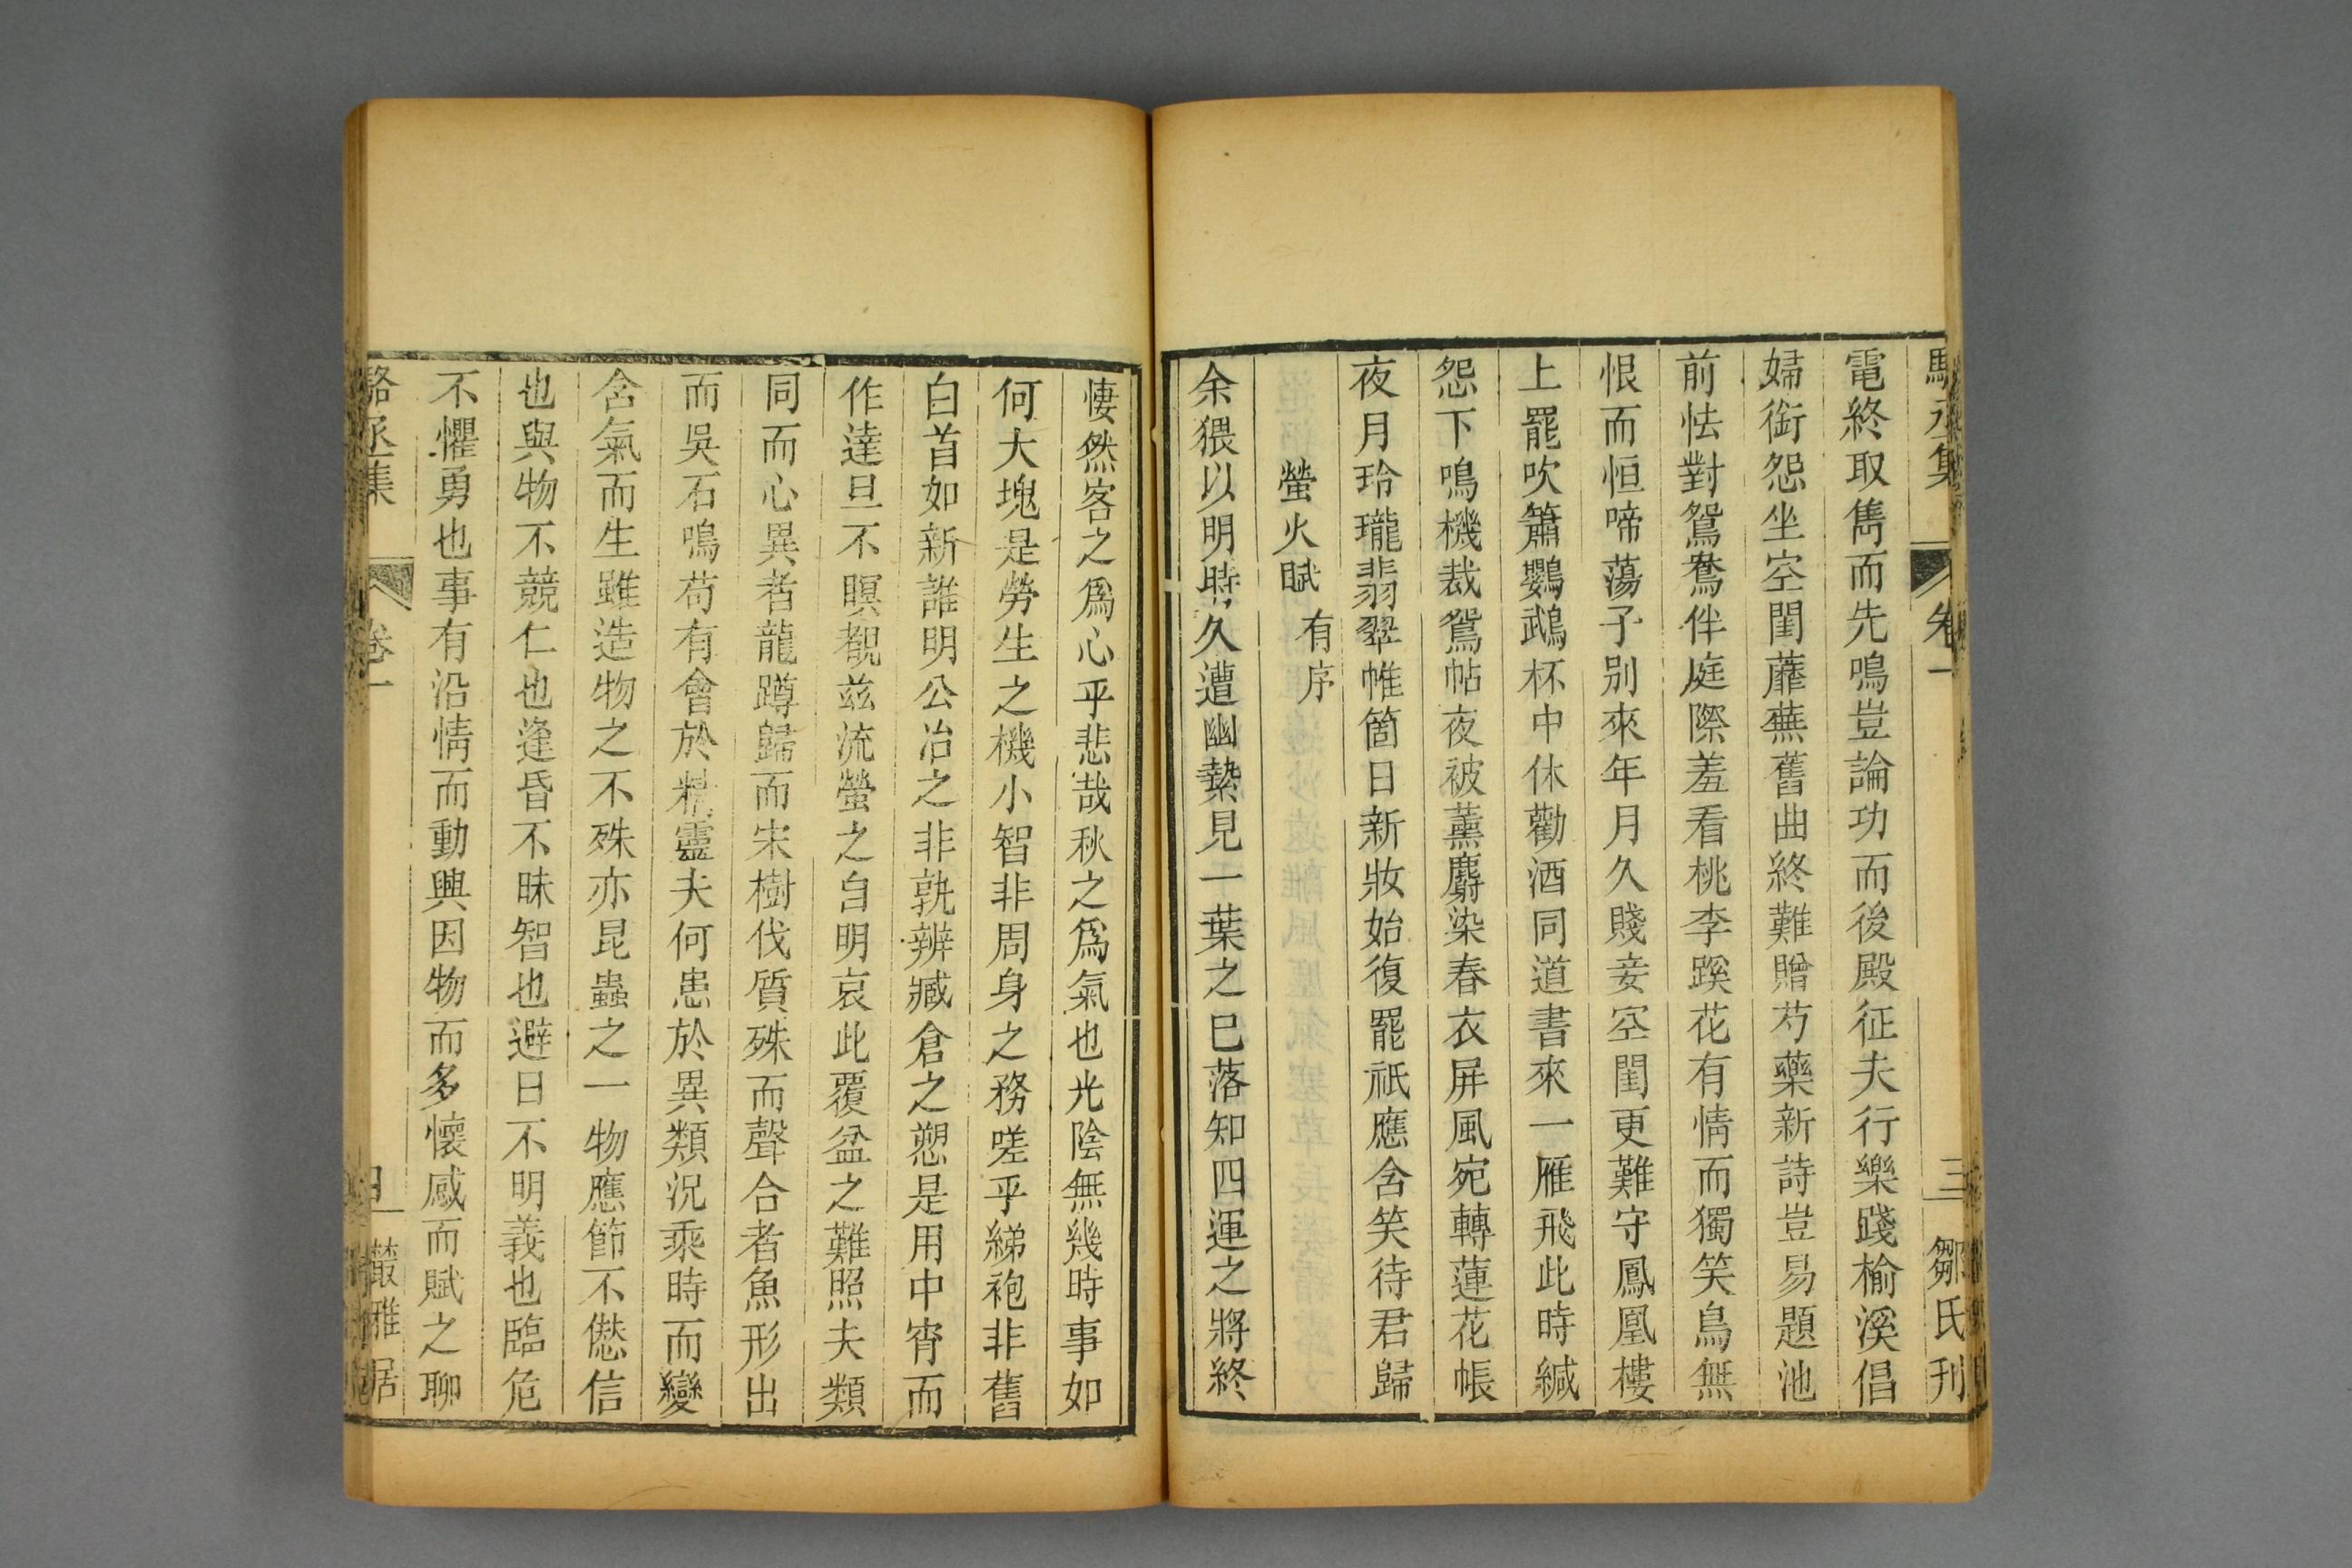 駱丞集 卷一 三 鄒氏刊
電終取雋而先鳴豈論功而後殿征夫行樂踐榆溪倡
婦銜怨坐空閨蘼蕪舊曲終難贈芍藥新詩豈易題池
前怯對鴛鴦伴庭際羞看桃李蹊花有情而獨笑鳥無
恨而恒啼蕩子別來年月久賤妾空閨更難守鳳凰樓
上罷吹簫鸚鵡杯中休勸酒同道書來一雁飛此時緘
怨下鳴機裁鴛帖夜被薰麝染春衣屏風宛轉蓮花帳
夜月玲瓏翡翠帷箇日新妝始復罷祇應含笑待君歸
螢火賦 有序
余猥以明時久遭幽縶見一葉之已落知四運之將終
悽然客之爲心乎悲哉秋之爲氣也光陰無幾時事如
何大塊是勞生之機小智非周身之務嗟乎綈袍非舊
白首如新誰明公冶之非孰辨臧倉之愬是用中宵而
作達旦不瞑覩茲流螢之自明哀此覆盆之難照夫類
同而心異者龍蹲歸而宋樹伐質殊而聲合者魚形出
而吳石鳴苟有會於精靈夫何患於異類況乘時而變
含氣而生雖造物之不殊亦昆蟲之一物應節不愆信
也與物不競仁也逢昏不昧智也避日不明義也臨危
不懼勇也事有沿情而動興因物而多懷感而賦之聊
駱丞集 卷一 叢雅居